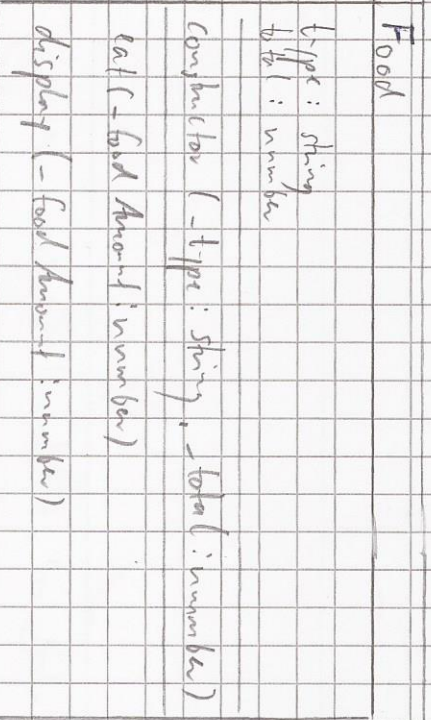 Food
type : string
total : number
constructor (_type : string, _total : number)
eat (_foodAmount : number)
display (_foodAmount : number)